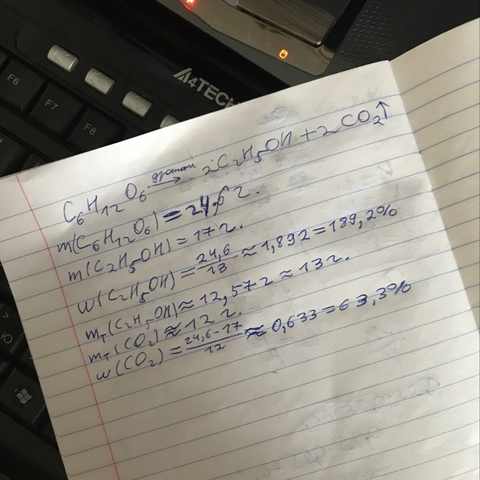 F6
F7
F8
A4TECH
C6H12O6 →дрожжи 2C2H5OH + 2CO2↑
m(C6H12O6) = 24,6 г.
m(C2H5OH) = 17 г.
w(C2H5OH) = 24,6/13 ≈ 1,892 = 189,2%
mт(C2H5OH) ≈ 12,57 г ≈ 13 г.
mт(CO2) ≈ 12 г.
w(CO2) = 24,6-17/12 ≈ 0,633 = 63,3%